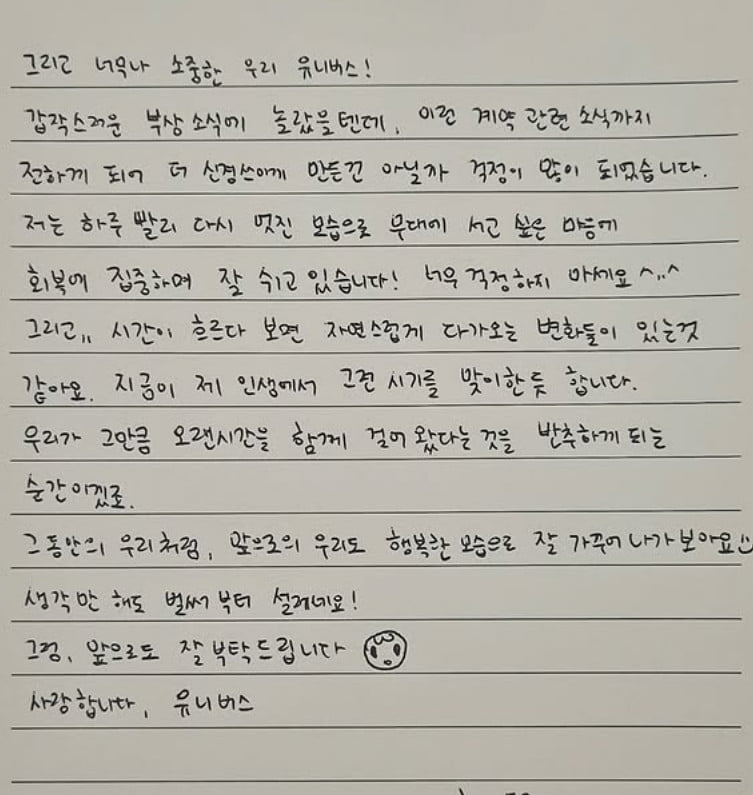 그리고 너무나 소중한 우리 유니버스!
갑작스러운 부상 소식에 놀랐을텐데, 이런 계약 관련 소식까지
전하게 되어 더 신경쓰이게 만든건 아닐까 걱정이 많이 되었습니다.
저는 하루 빨리 다시 멋진 모습으로 무대에 서고 싶은 마음에
회복에 집중하며 잘 쉬고 있습니다! 너무 걱정하지 마세요 ^,,^
그리고,, 시간이 흐르다 보면 자연스럽게 다가오는 변화들이 있는것
같아요. 지금이 제 인생에서 그런 시기를 맞이한듯 합니다.
우리가 그만큼 오랜시간을 함께 걸어 왔다는 것을 반추하게 되는
순간이겠죠.
그동안의 우리처럼, 앞으로의 우리도 행복한 모습으로 잘 가꾸어 나가보아요
생각만 해도 벌써부터 설레네요!
그럼, 앞으로도 잘 부탁드립니다
사랑합니다, 유니버스